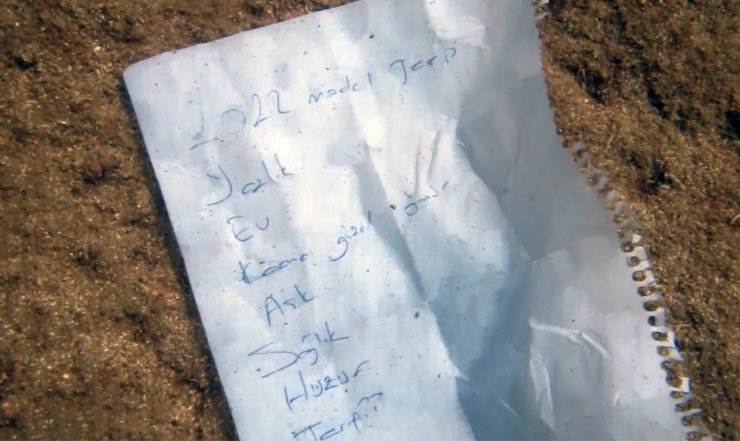 2022 model Jeep
Yazlık
Ev
güzel ömür
Aşk
Sağlık
Huzur
Terfi